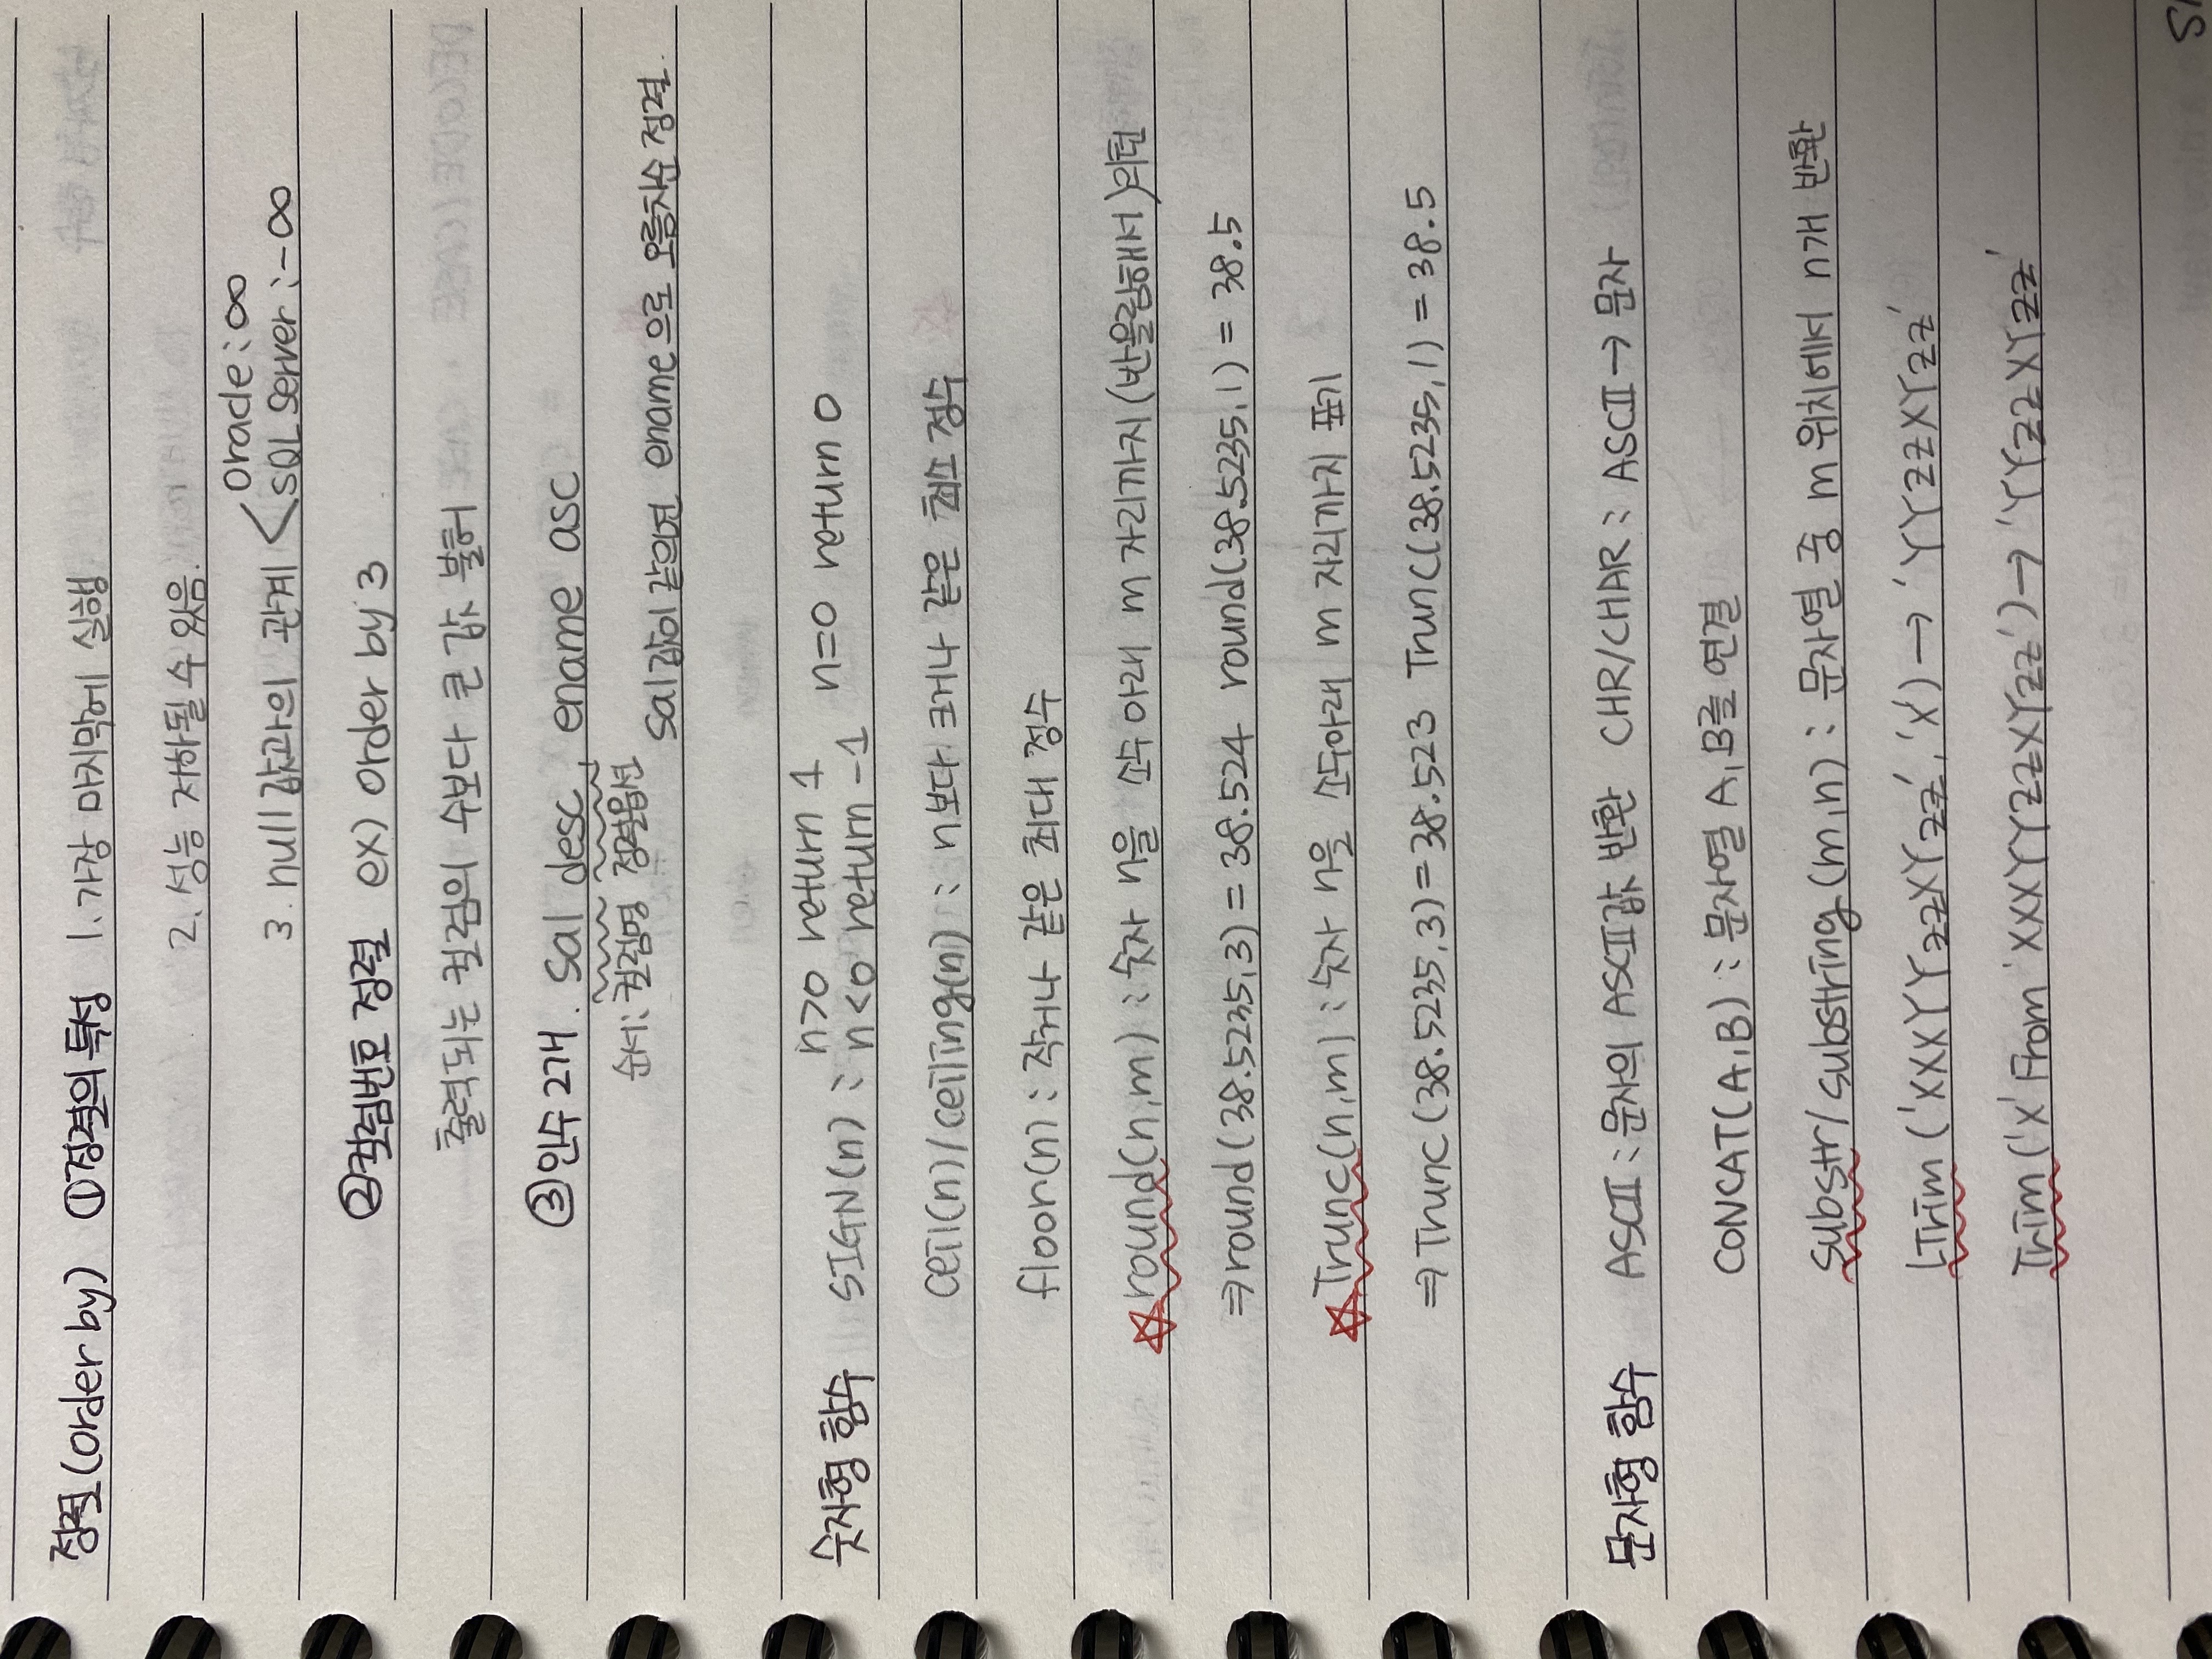 정렬(order by) ①정렬의 특성 1. 가장 마지막에 실행
2. 성능 저하될 수 있음.
3. null값과의 관계 < oracle : ∞
SQL Server : -∞
②컬럼번호 정렬 ex) order by 3
출력되는 컬럼의 수보다 큰 값 불허
③인수 2개. sal desc, ename asc
순서: 컬럼명 정렬옵션
sal값이 같으면 ename으로 오름차순 정렬.
숫자형 함수 SIGN(n) : n>0 return 1 n=0 return 0
n<0 return -1
ceil(n)/ceiling(n) : n보다 크거나 같은 최소 정수
floor(n) : 작거나 같은 최대 정수
☆round(n,m) : 숫자 n을 소수 아래 m 자리까지 (반올림해서)리턴
⇒round(38.5235,3) = 38.524 round(38.5235,1) = 38.5
☆Trunc(n,m) : 숫자 n을 소수아래 m 자리까지 표기
⇒Trunc(38.5235,3) = 38.523 Trunc(38.5235,1) = 38.5
문자형 함수 ASCII : 문자의 ASCII값 반환 CHR/CHAR : ASCII → 문자
CONCAT(A,B) : 문자열 A,B를 연결
substr/substring(m,n) : 문자열 중 m 위치에서 n개 반환
LTrim ('XXXYYZZXYZZ', 'X') → 'YYZZXYZZ'
Trim ('X' From 'XXXYYZZXYZZ') → 'YYZZXYZZ'